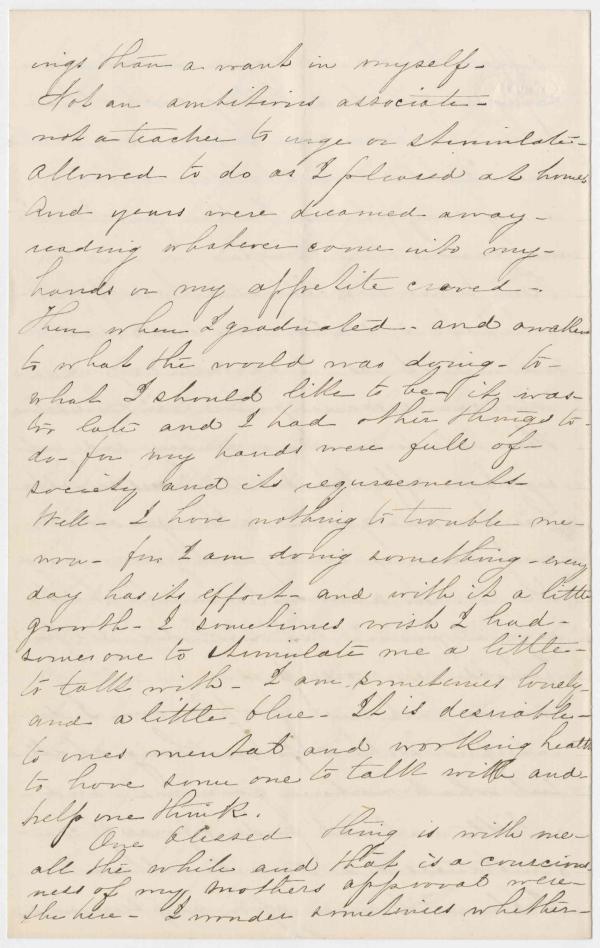 ings than a want in myself-
Not an ambitious associate-
not a teacher to urge or stimulate-
allowed to do as I pleased at home,
And years were dreamed away-
reading whatever come into my-
hands or my appetite craved-.
Then when I graduated- and awaken
to what the world was doing- to-
what I should like to be- it was-
too late and I had other things to-
do- for my hands were full of-
society and its requirements-
Well- I have nothing to trouble me-
now- for I am doing something- every
day has its effort- and with it a little
growth- I sometimes wish I had-
someone to stimulate me a little-
to talk with- I am sometimes lonely-
and a little blue- It is desirable-
to ones mental and working health
to have some one to talk with and-
help one think.
One blessed thing is with me-
all the while and that is a conscious
ness of my mothers approval were-
she here- I wonder sometimes whether-